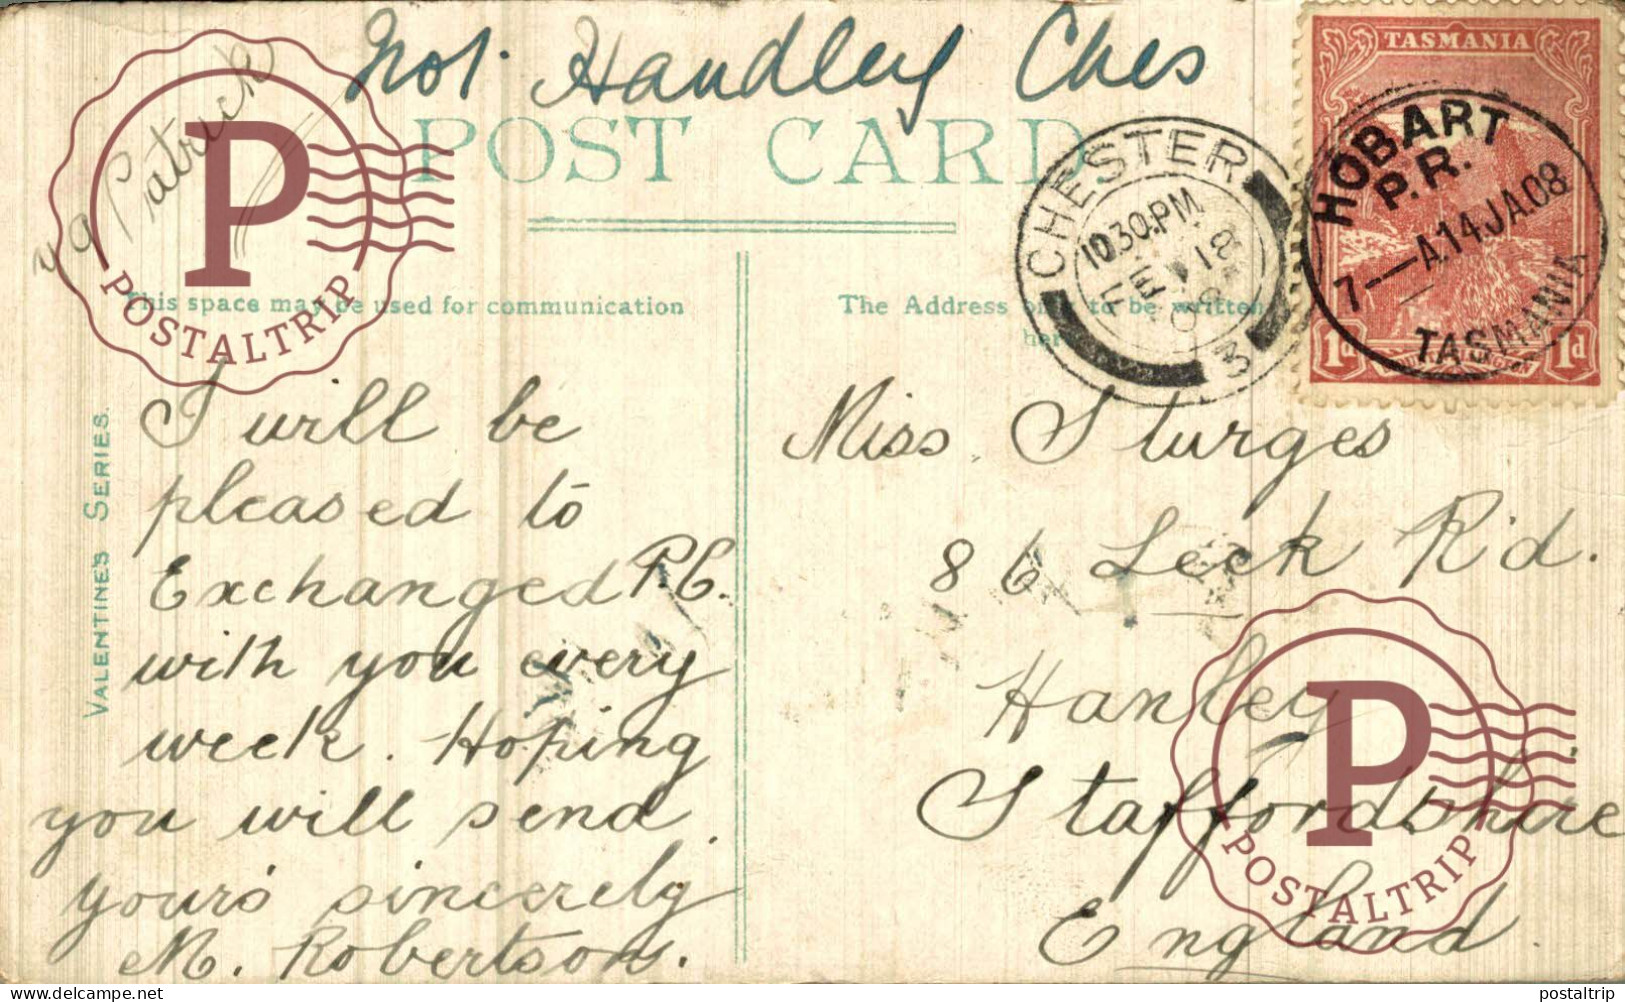 Not. Handley Ches
Patrick
POST CARD
TASMANIA
HOBART
P.R.
7—A.14JA.08
TASMANIA
1d 1d
CHESTER
10.30.PM.
FE 18
08
3
This space may be used for communication
The Address only to be written
here
VALENTINE'S SERIES.
I will be
pleased to
Exchanged P.C.
with you every
week. Hoping
you will send
your's sincerely
M. Robertson.
Miss. Sturges
86 Leek R'd.
Hanley
Staffordshire
England.
P
POSTALTRIP
P
POSTALTRIP
www.delcampe.net
postaltrip